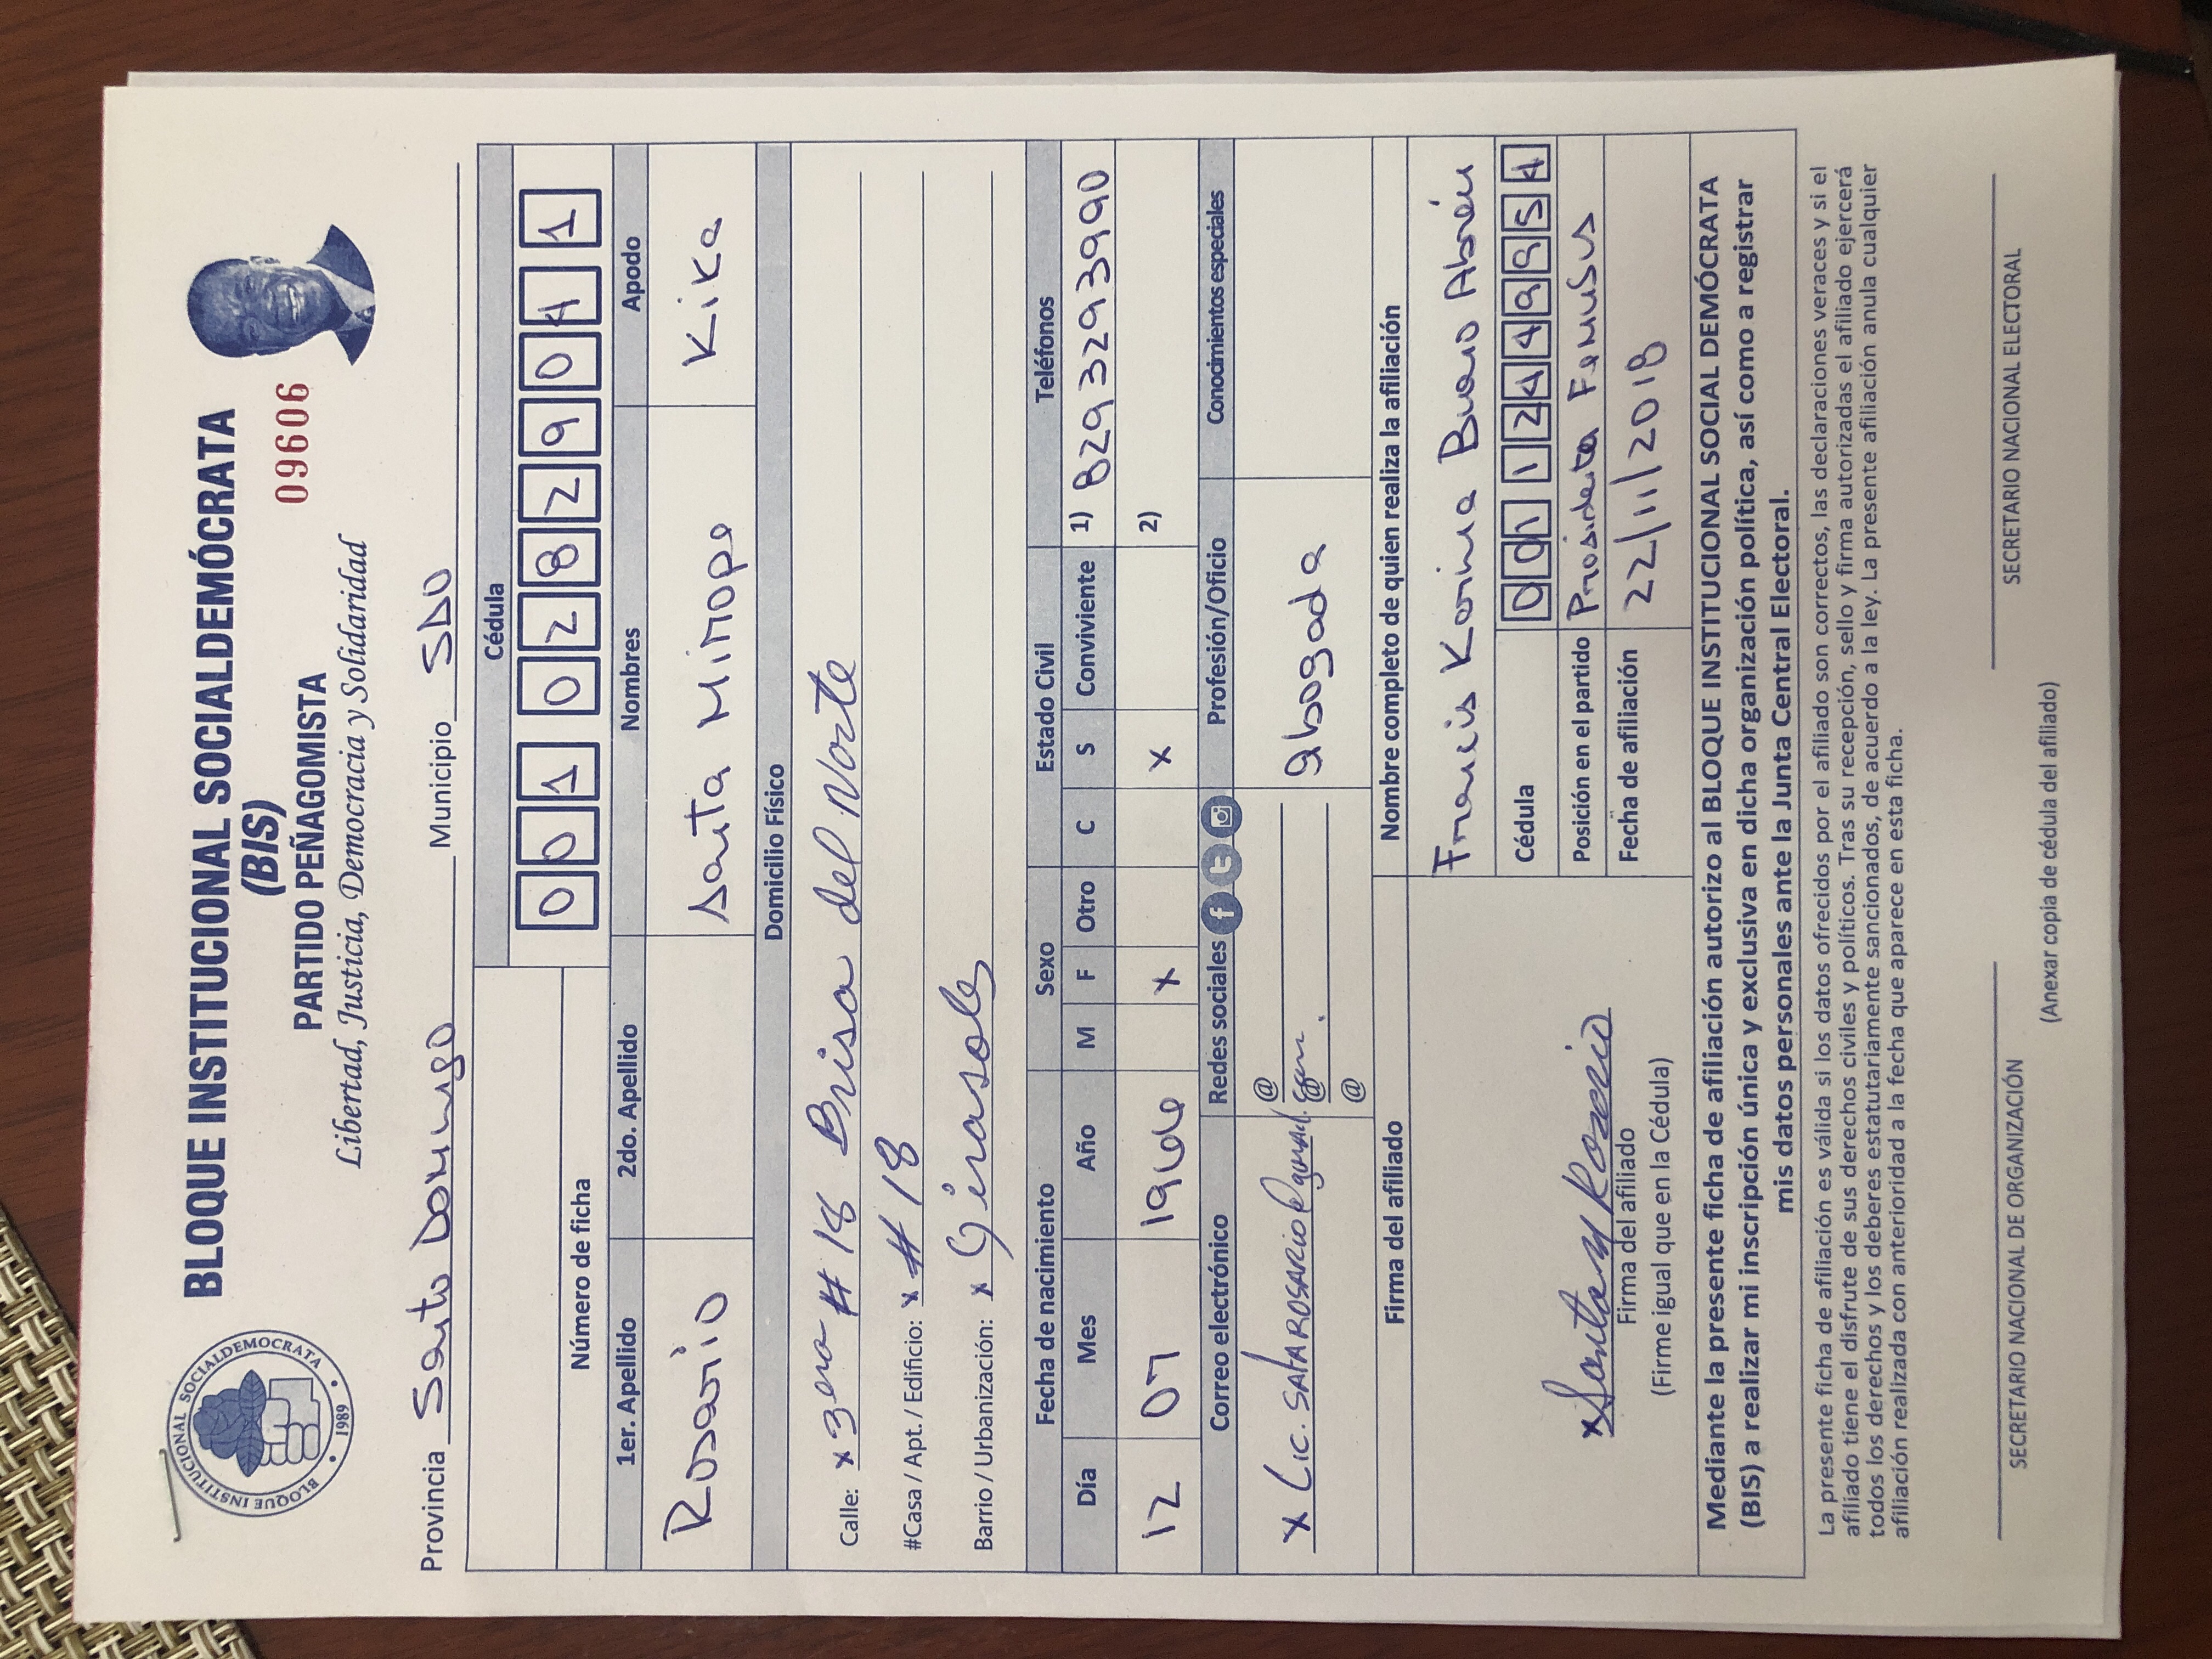 BLOQUE INSTITUCIONAL SOCIALDEMOCRATA
1989
BLOQUE INSTITUCIONAL SOCIALDEMÓCRATA
(BIS)
PARTIDO PEÑAGOMISTA
09606
Libertad, Justicia, Democracia y Solidaridad
Provincia Santo Domingo Municipio SDO
Cédula
0 0 1 0 2 8 2 9 0 4 1
Número de ficha
1er. Apellido 2do. Apellido Nombres Apodo
Rosario Santa Minope Kika
Domicilio Físico
Calle: x 3era # 18 Brisa del Norte
#Casa / Apt. / Edificio: x # 18
Barrio / Urbanización: x Girasoles
Fecha de nacimiento Sexo Estado Civil Teléfonos
Día Mes Año M F Otro C S Conviviente 1) 8293293990
12 07 1966 x x 2)
Correo electrónico Redes sociales Profesión/Oficio Conocimientos especiales
@
x Lic. SATAROSARIO@gmail.com @ abogada
@
Firma del afiliado Nombre completo de quien realiza la afiliación
Francis Karina Bueno Abréu
Cédula 0 0 1 1 2 4 4 9 9 5 4
Posición en el partido Presidenta
Fecha de afiliación 22/11/2018
x Santa M Rosario
Firma del afiliado
(Firme igual que en la Cédula)
Mediante la presente ficha de afiliación autorizo al BLOQUE INSTITUCIONAL SOCIAL DEMÓCRATA
(BIS) a realizar mi inscripción única y exclusiva en dicha organización política, así como a registrar
mis datos personales ante la Junta Central Electoral.
La presente ficha de afiliación es válida si los datos ofrecidos por el afiliado son correctos, las declaraciones veraces y si el
afiliado tiene el disfrute de sus derechos civiles y políticos. Tras su recepción, sello y firma autorizadas el afiliado ejercerá
todos los derechos y los deberes estatutariamente sancionados, de acuerdo a la ley. La presente afiliación anula cualquier
afiliación realizada con anterioridad a la fecha que aparece en esta ficha.
SECRETARIO NACIONAL DE ORGANIZACIÓN SECRETARIO NACIONAL ELECTORAL
(Anexar copia de cédula del afiliado)